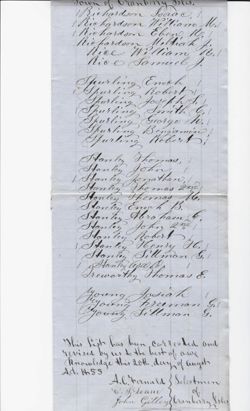 Town of Cranberry Isles
Richardson Isaac
Richardson William M.
Richardson Eben
Richardson
Rice William
Rice Samuel J.
Spurling Enoch
Spurling Robert
Spurling Joseph
Spurling Smith
Spurling George H.
Spurling Benjamin
Spurling Robert
Stanly Thomas
Stanly John
Stanly Jonathan
Stanly Thomas 2nd
Stanly Thomas M.
Stanly Enoch B.
Stanly Abraham C.
Stanly John 2nd
Stanly Robert
Stanly Henry H.
Stanly Sillman G.
Stanly
Treworthy Thomas E.
Young Josiah
Young Freeman G.
Young Tillman G.
This List has been corrected and
revised by us to the best of our
Knowledge this 20th day of August
A.D. 1855
A.C. Fernald } Selectmen
of
John Gilley } Cranberry Isles